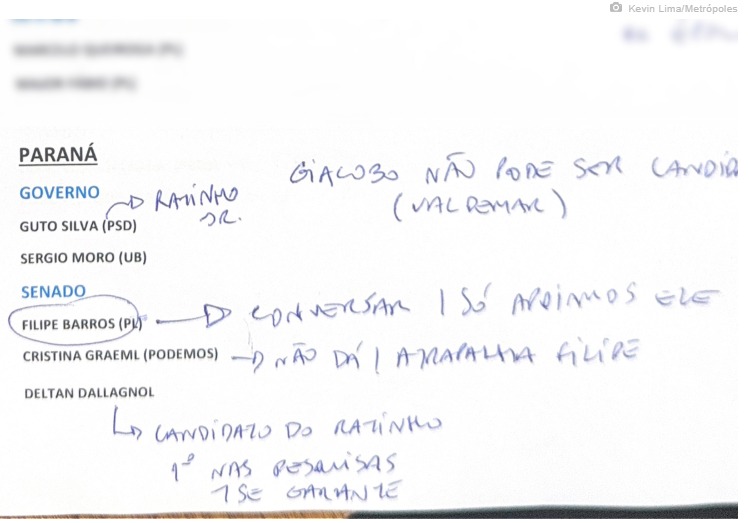 Kevin Lima/Metrópoles
PARANÁ
GIACOBO NÃO PODE SER CANDID
(VALDEMAR)
GOVERNO
RATINHO
JR.
GUTO SILVA (PSD)
SERGIO MORO (UB)
SENADO
FILIPE BARROS (PL)
CONVERSAR | SÓ APOIAMOS ELE
CRISTINA GRAEML (PODEMOS)
NÃO DÁ | ATRAPALHA FILIPE
DELTAN DALLAGNOL
CANDIDATO DO RATINHO
1º NAS PESQUISAS
SE GARANTE